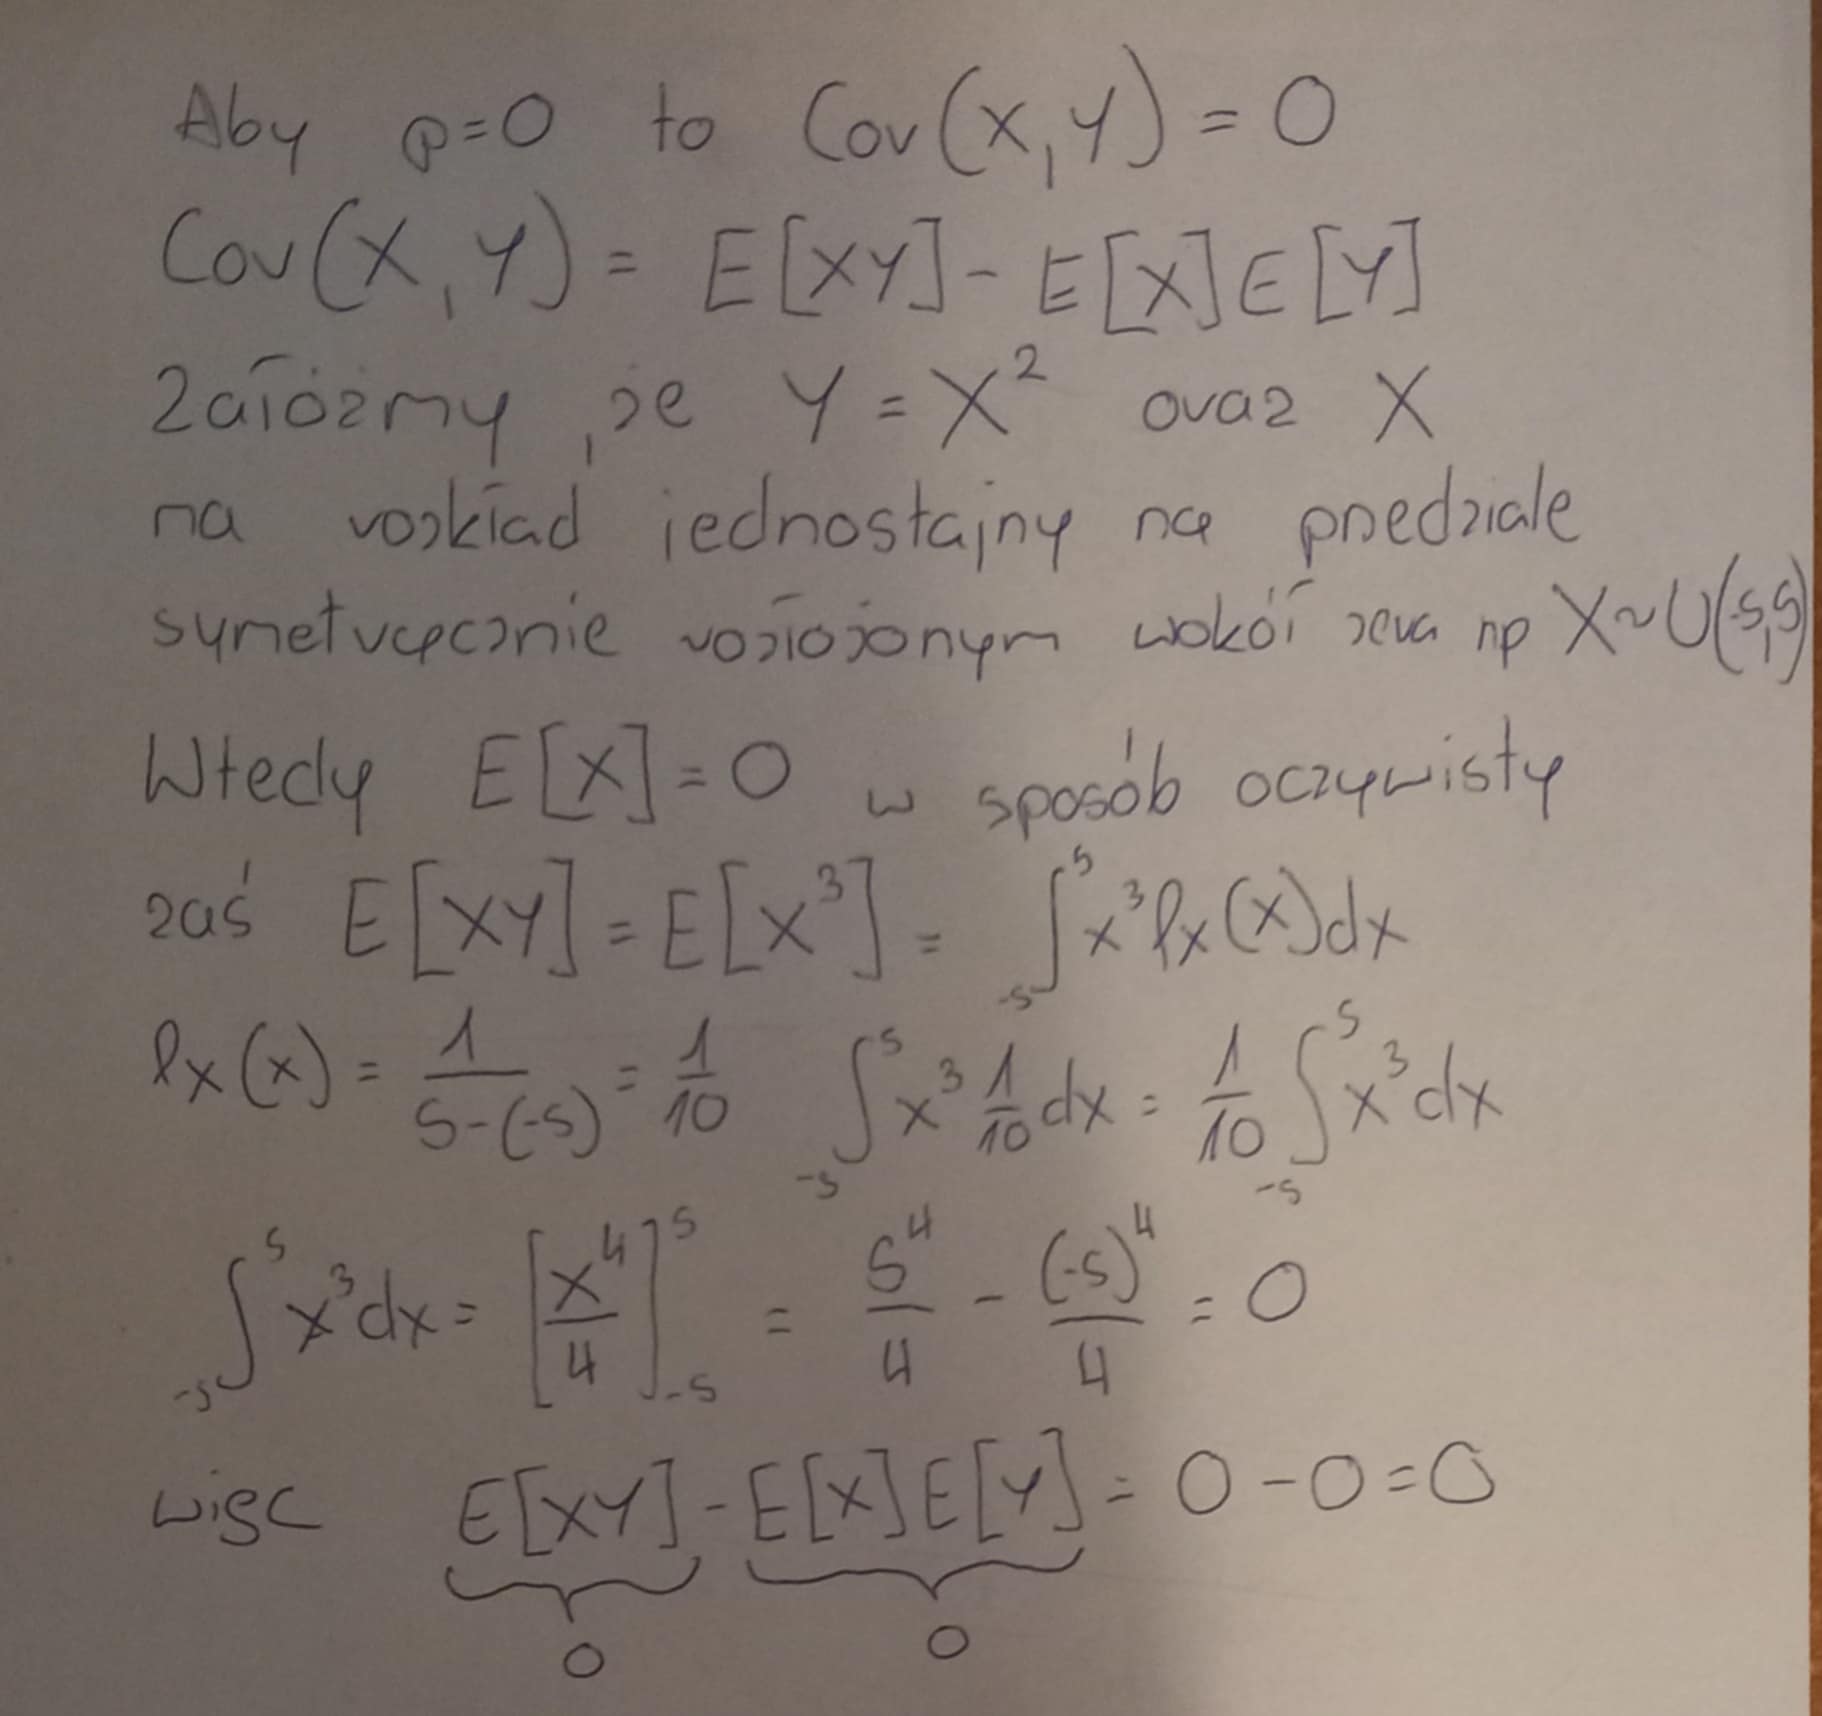 Aby ρ=0 to Cov(X,Y)=0
Cov(X,Y) = E[XY] - E[X]E[Y]
Załóżmy, że Y = X² oraz X
na rozkład jednostajny na przedziale
symetrycznie rozłożonym wokół zera np X~U(-5,5)
Wtedy E[X]=0 w sposób oczywisty
zaś E[XY] = E[X³] = ∫₋₅⁵ x³ fx(x)dx
fx(x) = 1/(5-(-5)) = 1/10 ∫₋₅⁵ x³ 1/10 dx = 1/10 ∫₋₅⁵ x³dx
∫₋₅⁵ x³dx = [x⁴/4]₋₅⁵ = 5⁴/4 - (-5)⁴/4 = 0
więc E[XY] - E[X]E[Y] = 0-0=0
0 0